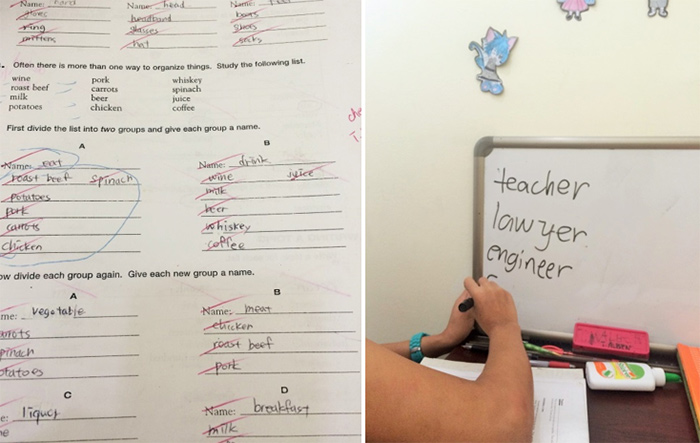 Name: hard Name: head Name: feet
gloves headband boots
ring glasses shoes
mittens hat socks
Often there is more than one way to organize things. Study the following list.
wine pork whiskey
roast beef carrots spinach
milk beer juice
potatoes chicken coffee
First divide the list into two groups and give each group a name.
A B
Name: eat Name: drink
roast beef spinach wine juice
potatoes milk
pork beer
carrots whiskey
chicken coffee
ow divide each group again. Give each new group a name.
A B
me: vegetable Name: meat
arrots chicken
pinach roast beef
otatoes pork
C D
e: liquor Name: breakfast
ne milk
teacher
lawyer
engineer